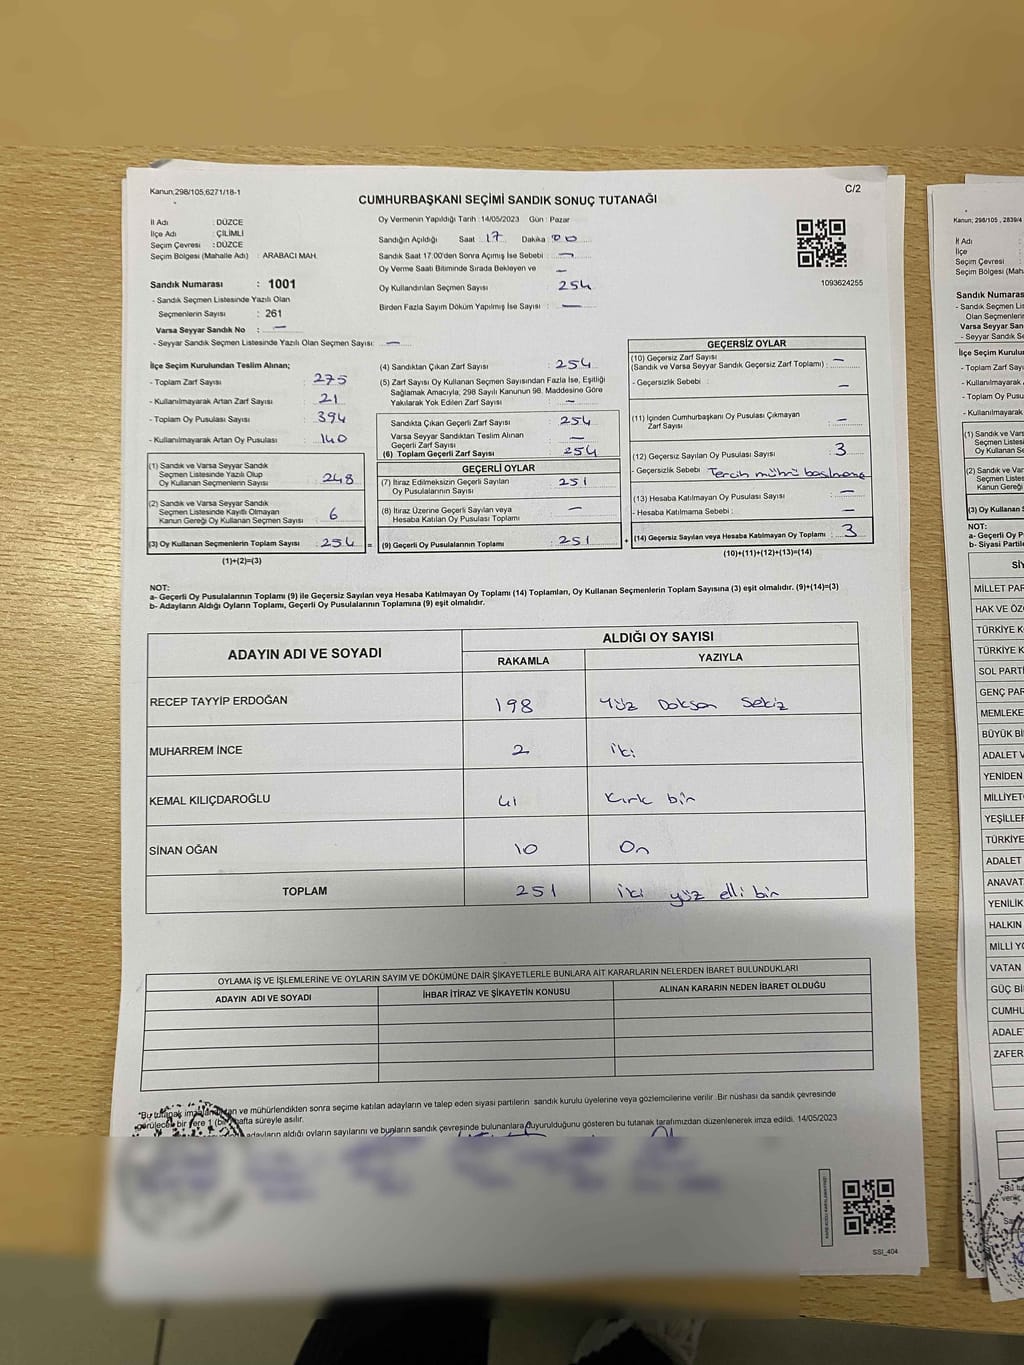 Kanun;298/105,6271/18-1
C/2
CUMHURBAŞKANI SEÇİMİ SANDIK SONUÇ TUTANAĞI
İl Adı : DÜZCE
İlçe Adı : ÇİLİMLİ
Seçim Çevresi : DÜZCE
Seçim Bölgesi (Mahalle Adı) : ARABACI MAH.
Sandık Numarası : 1001
- Sandık Seçmen Listesinde Yazılı Olan
Seçmenlerin Sayısı : 261
Varsa Seyyar Sandık No : —
- Seyyar Sandık Seçmen Listesinde Yazılı Olan Seçmen Sayısı: —
Oy Vermenin Yapıldığı Tarih :14/05/2023 Gün : Pazar
Sandığın Açıldığı Saat 17 Dakika 00
Sandık Saat 17:00'den Sonra Açımış İse Sebebi : —
Oy Verme Saati Bitiminde Sırada Bekleyen ve —
Oy Kullandırılan Seçmen Sayısı : 254
Birden Fazla Sayım Döküm Yapılmış İse Sayısı : —
1093624255
İlçe Seçim Kurulundan Teslim Alınan;
- Toplam Zarf Sayısı : 275
- Kullanılmayarak Artan Zarf Sayısı : 21
- Toplam Oy Pusulası Sayısı : 394
- Kullanılmayarak Artan Oy Pusulası : 140
(1) Sandık ve Varsa Seyyar Sandık
Seçmen Listesinde Yazılı Olup
Oy Kullanan Seçmenlerin Sayısı : 248
(2) Sandık ve Varsa Seyyar Sandık
Seçmen Listesinde Kayıtlı Olmayan
Kanun Gereği Oy Kullanan Seçmen Sayısı : 6
(3) Oy Kullanan Seçmenlerin Toplam Sayısı : 254 =
(1)+(2)=(3)
(4) Sandıktan Çıkan Zarf Sayısı : 254
(5) Zarf Sayısı Oy Kullanan Seçmen Sayısından Fazla İse, Eşitliği
Sağlamak Amacıyla; 298 Sayılı Kanunun 98. Maddesine Göre
Yakılarak Yok Edilen Zarf Sayısı : —
Sandıkta Çıkan Geçerli Zarf Sayısı : 254
Varsa Seyyar Sandıktan Teslim Alınan
Geçerli Zarf Sayısı : —
(6) Toplam Geçerli Zarf Sayısı : 254
GEÇERLİ OYLAR
(7) İtiraz Edilmeksizin Geçerli Sayılan
Oy Pusulalarının Sayısı : 251
(8) İtiraz Üzerine Geçerli Sayılan veya
Hesaba Katılan Oy Pusulası Toplamı : —
(9) Geçerli Oy Pusulalarının Toplamı : 251 +
GEÇERSİZ OYLAR
(10) Geçersiz Zarf Sayısı
(Sandık ve Varsa Seyyar Sandık Geçersiz Zarf Toplamı) : —
- Geçersizlik Sebebi : —
(11) İçinden Cumhurbaşkanı Oy Pusulası Çıkmayan
Zarf Sayısı : —
(12) Geçersiz Sayılan Oy Pusulası Sayısı : 3
- Geçersizlik Sebebi : Tercih mührü basılmama
(13) Hesaba Katılmayan Oy Pusulası Sayısı : —
- Hesaba Katılmama Sebebi : —
(14) Geçersiz Sayılan veya Hesaba Katılmayan Oy Toplamı : 3
(10)+(11)+(12)+(13)=(14)
NOT:
a- Geçerli Oy Pusulalarının Toplamı (9) ile Geçersiz Sayılan veya Hesaba Katılmayan Oy Toplamı (14) Toplamları, Oy Kullanan Seçmenlerin Toplam Sayısına (3) eşit olmalıdır. (9)+(14)=(3)
b- Adayların Aldığı Oyların Toplamı, Geçerli Oy Pusulalarının Toplamına (9) eşit olmalıdır.
ADAYIN ADI VE SOYADI
ALDIĞI OY SAYISI
RAKAMLA YAZIYLA
RECEP TAYYİP ERDOĞAN 198 Yüz Doksan Sekiz
MUHARREM İNCE 2 iki
KEMAL KILIÇDAROĞLU 41 Kırk bir
SİNAN OĞAN 10 On
TOPLAM 251 iki yüz elli bir
OYLAMA İŞ VE İŞLEMLERİNE VE OYLARIN SAYIM VE DÖKÜMÜNE DAİR ŞİKAYETLERLE BUNLARA AİT KARARLARIN NELERDEN İBARET BULUNDUKLARI
ADAYIN ADI VE SOYADI İHBAR İTİRAZ VE ŞİKAYETİN KONUSU ALINAN KARARIN NEDEN İBARET OLDUĞU
ve mühürlendikten sonra seçime katılan adayların ve talep eden siyasi partilerin sandık kurulu üyelerine veya gözlemcilerine verilir .Bir nüshası da sandık çevresinde
bir yere 1 (bir) hafta süreyle asılır.
adayların aldığı oyların sayılarını ve bunların sandık çevresinde bulunanlara duyurulduğunu gösteren bu tutanak tarafımızdan düzenlenerek imza edildi. 14/05/2023
SSI_404
Kanun; 298/105 , 2839/4
İl Adı
İlçe
Seçim Çevresi
Seçim Bölgesi (Mahalle
Sandık Numaras
- Sandık Seçmen Lis
Olan Seçmenlerin
Varsa Seyyar Sandık
- Seyyar Sandık Se
İlçe Seçim Kurulundan
- Toplam Zarf Sayıs
- Kullanılmayarak A
- Toplam Oy Pusu
- Kullanılmayarak
(1) Sandık ve Varsa
Seçmen Listesin
Oy Kullanan Se
(2) Sandık ve Varsa
Seçmen Listesin
Kanun Gereği
(3) Oy Kullanan Se
NOT:
a- Geçerli Oy P
b- Siyasi Partile
SİY
MİLLET PAR
HAK VE ÖZG
TÜRKİYE K
TÜRKİYE K
SOL PARTİ
GENÇ PAR
MEMLEKE
BÜYÜK Bİ
ADALET V
YENİDEN
MİLLİYET
YEŞİLLER
TÜRKİYE
ADALET
ANAVAT
YENİLİK
HALKIN
MİLLİ YO
VATAN
GÜÇ Bİ
CUMHU
ADALE
ZAFER